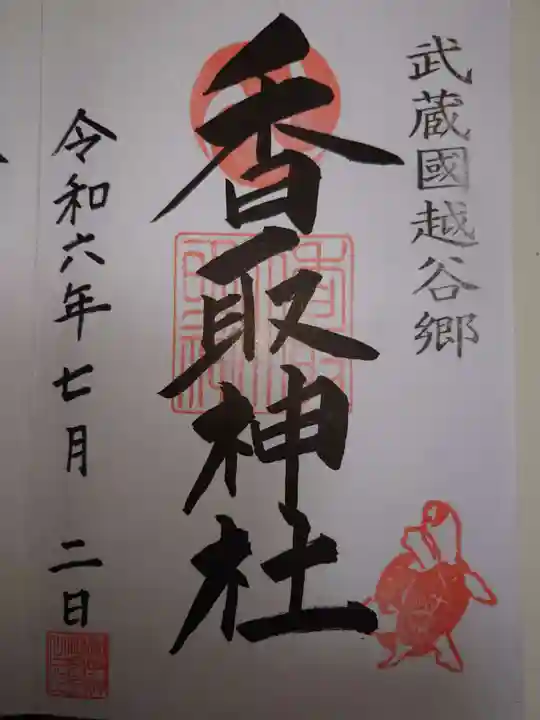 武蔵國越谷郷
香取神社
令和六年七月二日